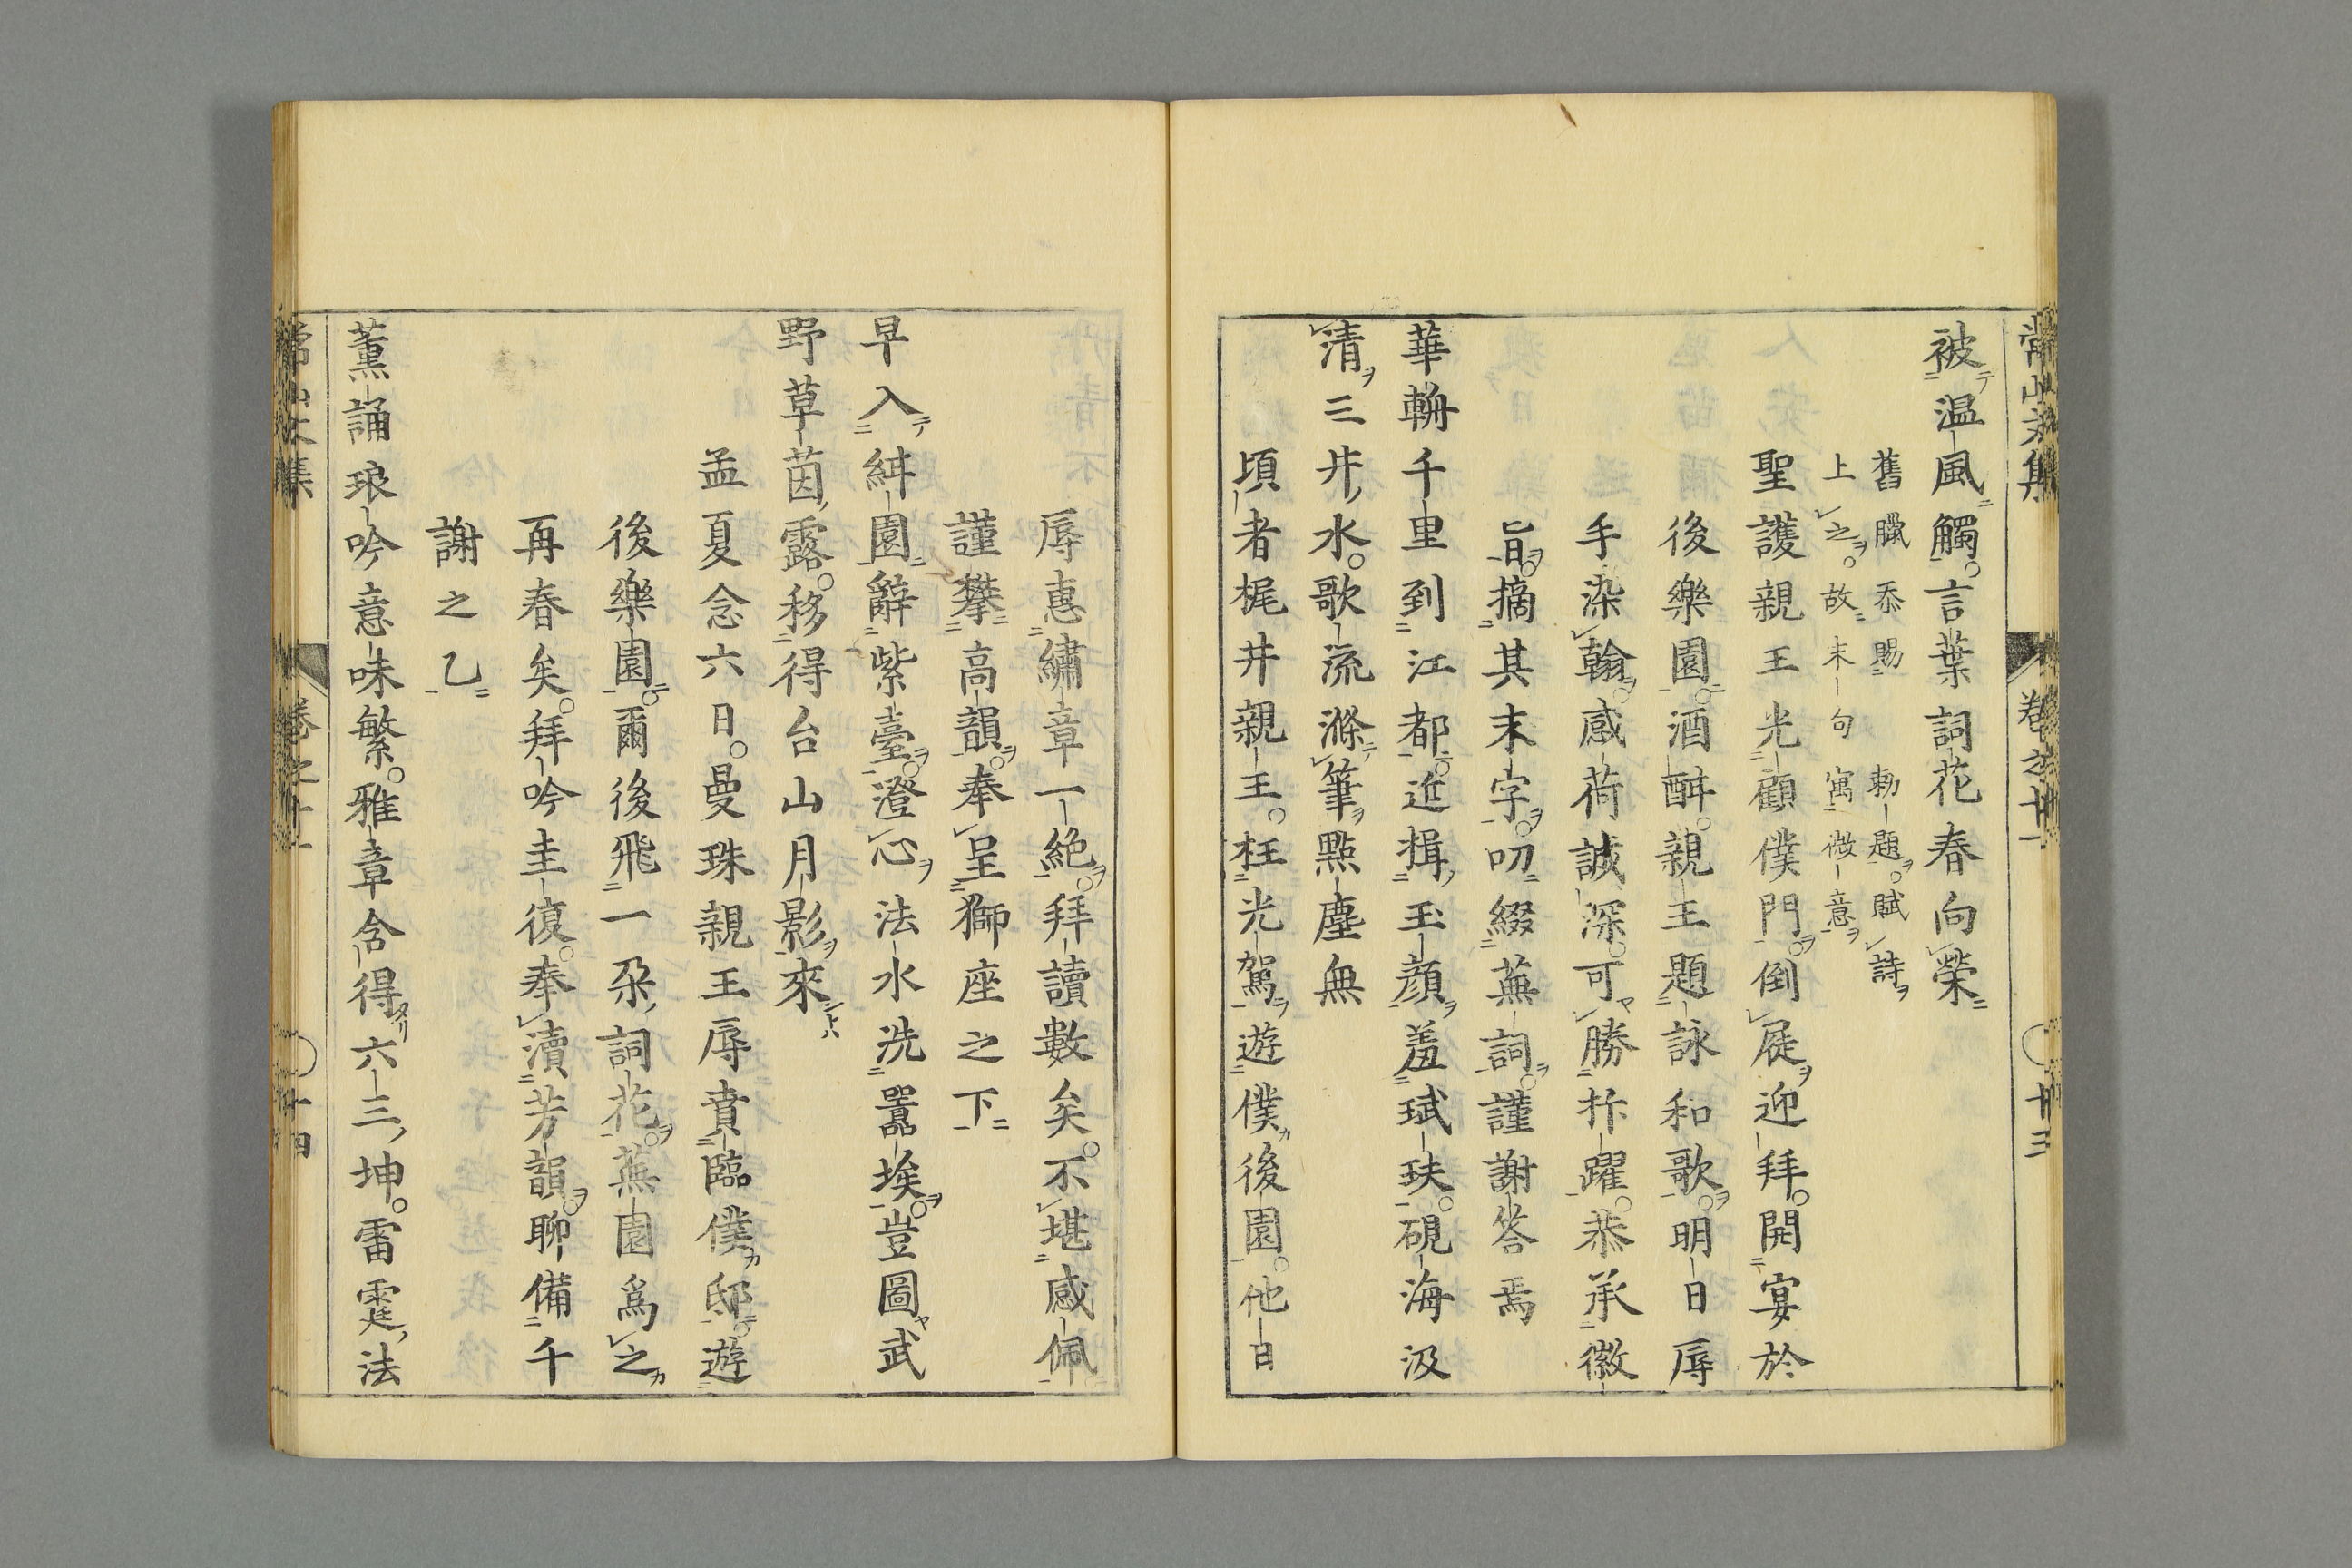 常山文集
卷之十一
十三
被温風觸言葉詞花春向榮
舊臘忝賜勅題賦詩
上之故末句寓微意
聖護親王光顧僕門倒屣迎拜開宴於
後樂園酒酣親王題詠和歌明日辱
手染翰感荷誠深可勝抃躍恭承徽
旨摘其末字叨綴蕪詞謹謝答焉
華輈千里到江都近揖玉顔羞珷玞硯海汲
清三井水歌流滌筆點塵無
頃者梶井親王枉光駕遊僕後園他日
辱惠繡章一絶拜讀數矣不堪感佩
謹攀高韻奉呈獅座之下
早入紏園辭紫臺澄心法水洗囂埃豈圖武
野草茵露移得台山月影來
孟夏念六日曼珠親王辱賁臨僕邸遊
後樂園爾後飛一朶詞花蕪園爲之
再春矣拜吟圭復奉瀆芳韻聊備千
謝之乙
薫誦琅吟意味繁雅章含得六三坤雷霆法
常山文集
卷之十一
十四